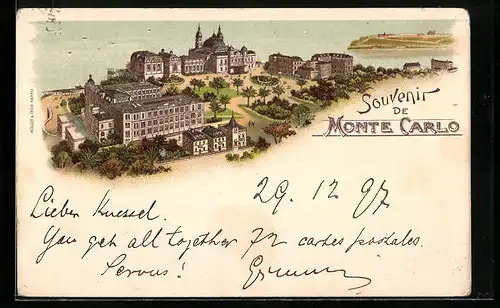 Souvenir
DE
MONTE CARLO
29. 12 97
Lieber Knessel.
You get all together 72 cartes postales.
Servus!